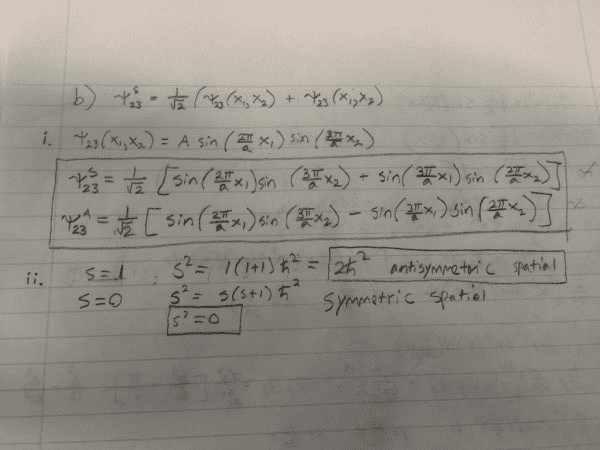 b) ψ₂₃ˢ = 1/√2 (ψ₂₃(x₁, x₂) + ψ₂₃(x₁, x₂)
i. ψ₂₃(x₁, x₂) = A sin(2π/a x₁) sin(3π/a x₂)
ψ₂₃ˢ = 1/√2 [sin(2π/a x₁) sin(3π/a x₂) + sin(3π/a x₁) sin(2π/a x₂)]
ψ₂₃ᴬ = 1/√2 [sin(2π/a x₁) sin(3π/a x₂) − sin(3π/a x₁) sin(2π/a x₂)]
ii. S=1 S² = 1(1+1)ħ² = 2ħ² antisymmetric spatial
S=0 S² = s(s+1)ħ² symmetric spatial
S²=0